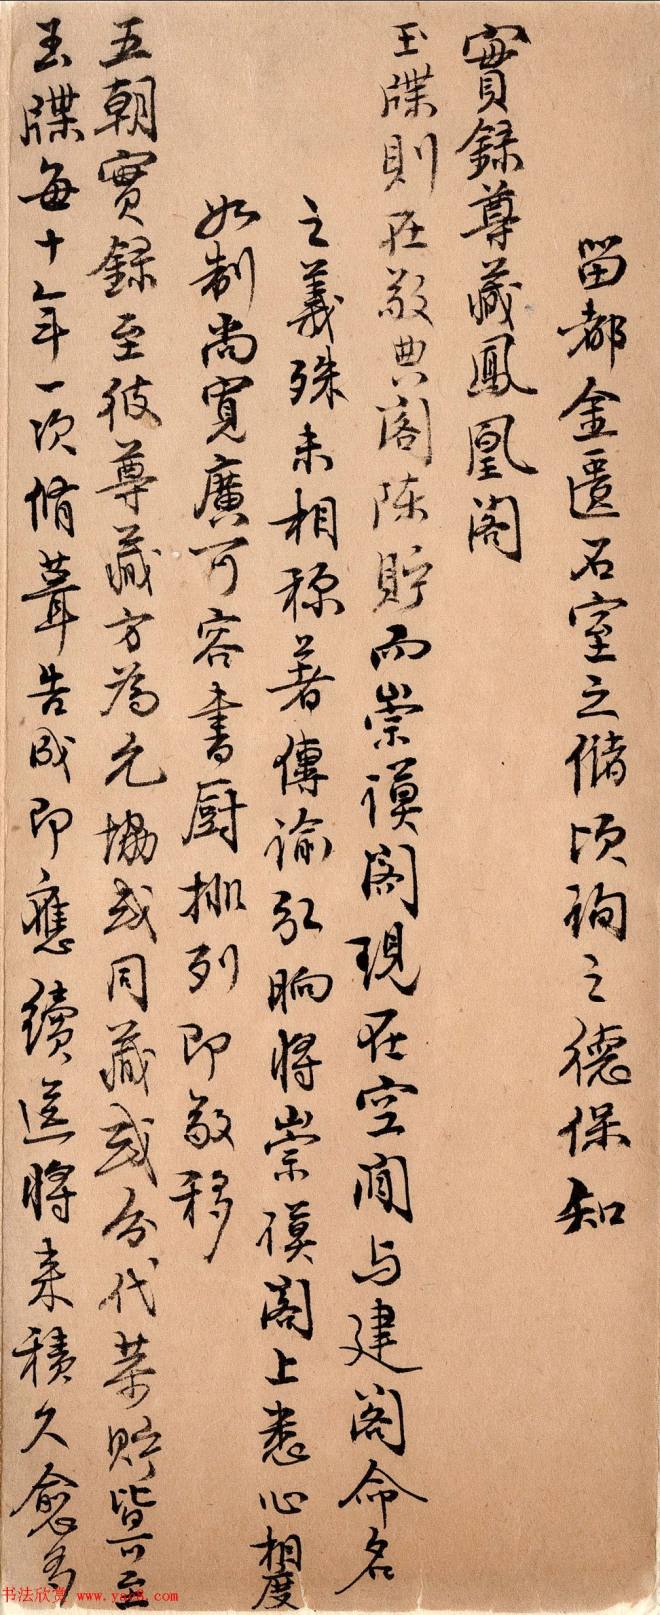 留都金匱石室之儲頃詢之德保知
實録尊藏鳳凰閣
玉牒則在敬典閣陳貯而崇謨閣現在空閒与建閣命名
之義殊未相稱著傳諭弘晌將崇謨閣上悉心相度
如制尚寬廣可容書厨排列即敬移
五朝實録至彼尊藏方為允協或同藏或分代恭貯皆可至
玉牒每十年一次脩葺告成即應續送將来積久愈多
书法欣赏 www.yac8.com